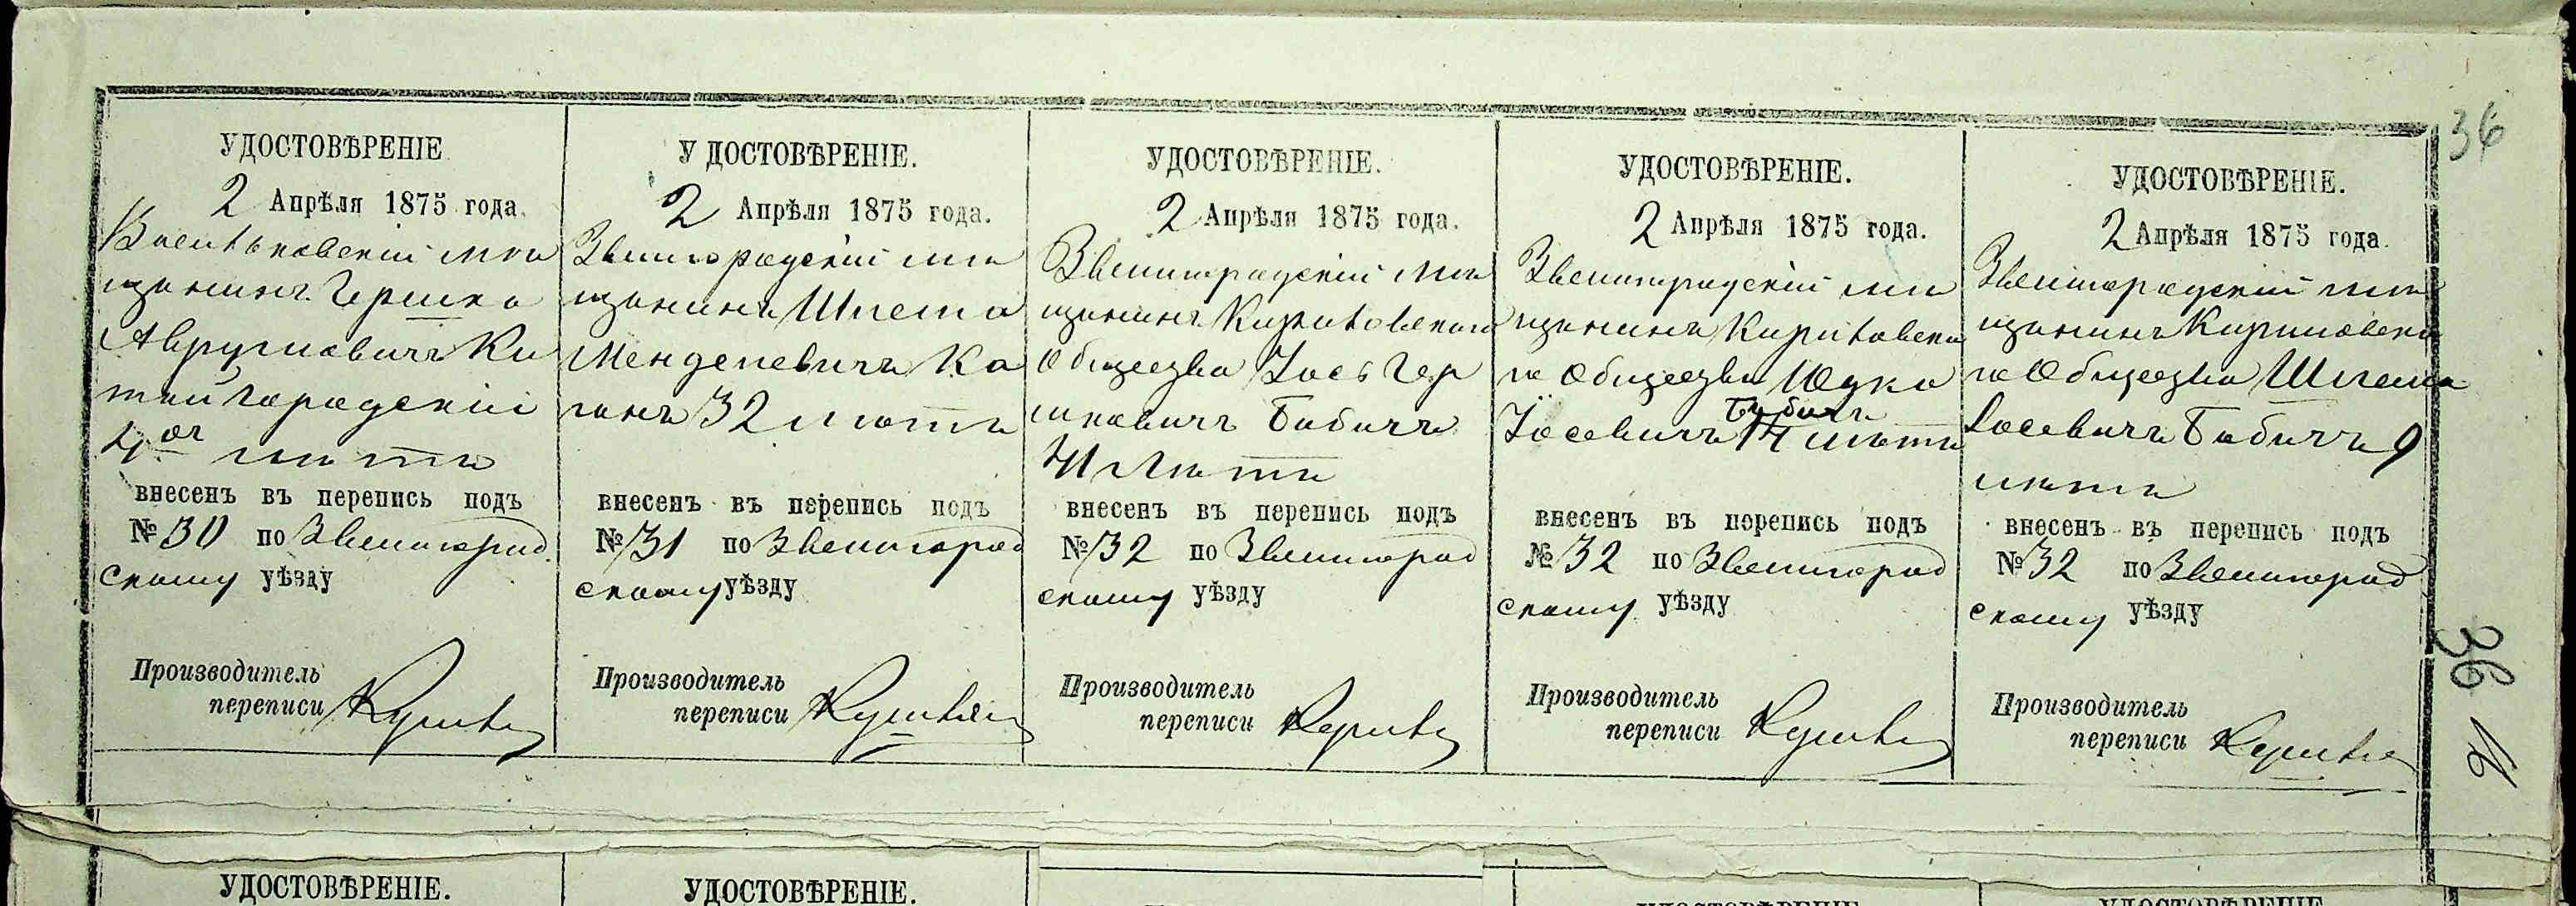 36
УДОСТОВѢРЕНІЕ
2 Апрѣля 1875 года.
Васильковскій мѣ
щанинъ Гершко
Аврумовичъ Ки
тайгородскій
лѣтъ
внесенъ въ перепись подъ
№ 30 по Звенигород
скому уѣзду
Производитель
переписи
УДОСТОВѢРЕНІЕ.
2 Апрѣля 1875 года.
Звенигородскій мѣ
щанинъ Шлема
Менделевичъ Ка
ганъ 32 лѣтъ
внесенъ въ перепись подъ
№ 31 по Звенигород
скому уѣзду
Производитель
переписи
УДОСТОВѢРЕНІЕ.
2 Апрѣля 1875 года.
Звенигородскій мѣ
щанинъ
Общества Іось Гер
шковичъ Бабичъ
41 лѣтъ
внесенъ въ перепись подъ
№ 32 по Звенигород
скому уѣзду
Производитель
переписи
УДОСТОВѢРЕНІЕ.
2 Апрѣля 1875 года.
Звенигородскій мѣ
щанинъ
го Общества Юдко
Бабичъ
Іосевичъ 14 лѣтъ
внесенъ въ перепись подъ
№ 32 по Звенигород
скому уѣзду
Производитель
переписи
УДОСТОВѢРЕНІЕ.
2 Апрѣля 1875 года.
Звенигородскій мѣ
щанинъ
го Общества Шлема
Іосевичъ Бабичъ 9
лѣтъ
внесенъ въ перепись подъ
№ 32 по Звенигород
скому уѣзду
Производитель
переписи
36
УДОСТОВѢРЕНІЕ.
УДОСТОВѢРЕНІЕ.